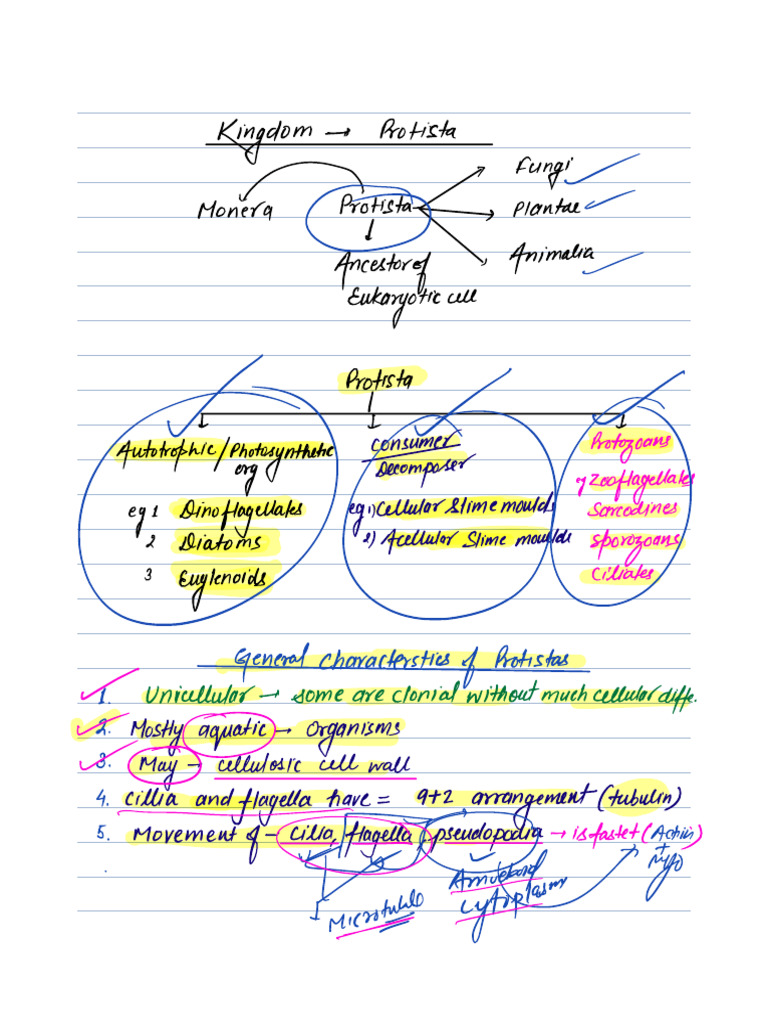 Kingdom → Protista
Fungi
Monera Protista Plantae
Animalia
Ancestor of
Eukaryotic cell
Protista
Autotrophic / Photosynthetic
org
eg 1 Dinoflagellates
2 Diatoms
3 Euglenoids
consumer
Decomposer
eg 1) Cellular Slime moulds
2) Acellular Slime moulds
Protozoans
eg Zooflagellates
Sarcodines
Sporozoans
Ciliates
General characterstics of Protistas
1. Unicellular → some are clonial without much cellular diffe.
2. Mostly aquatic → organisms
3. May → cellulosic cell wall
4. Cillia and flagella have = 9+2 arrangement (tubulin)
5. Movement of - Cilia, flagella, pseudopodia → is fastet (Actin
+
myo
Microtubule
cytoplasm